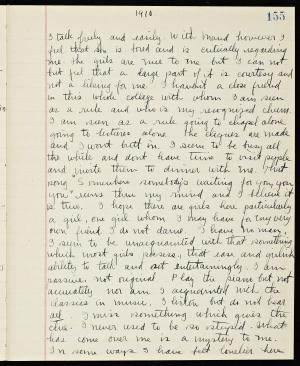 1910
155
I talk freely and easily with Maud however I
feel that she is tired and is critically regarding
me the girls are nice to me but I can not
but feel that a large part of it is courtesy and
not a liking for me. I haven't a close friend
in this whole college with whom I am seen
as a rule and who is my recognized chum.
I am seen as a rule going to chapel alone
going to lectures alone the cliques are made
and I won't butt in. I seem to be busy all
the while and don't have time to visit people
and invite them to dinner with me. That
song "Somewhere somebody's waiting for you,
you" runs thru my mind and I believe it
is true. I hope there are girls here particularly
a girl, one girl whom I may have for my very
own friend. I do not dare. I have no many.
I seem to be unacquainted with that something
which most girls possess, that ease and quick
ability to talk and act entertainingly. I am
passive. not original. Play the piano but not
accurately nor am I acquainted with the
classics in music. I listen but do not hear
all. I miss something which gives the
clue. I never used to be so stupid. What
has come over me is a mystery to me.
In some ways I have felt lonelier here